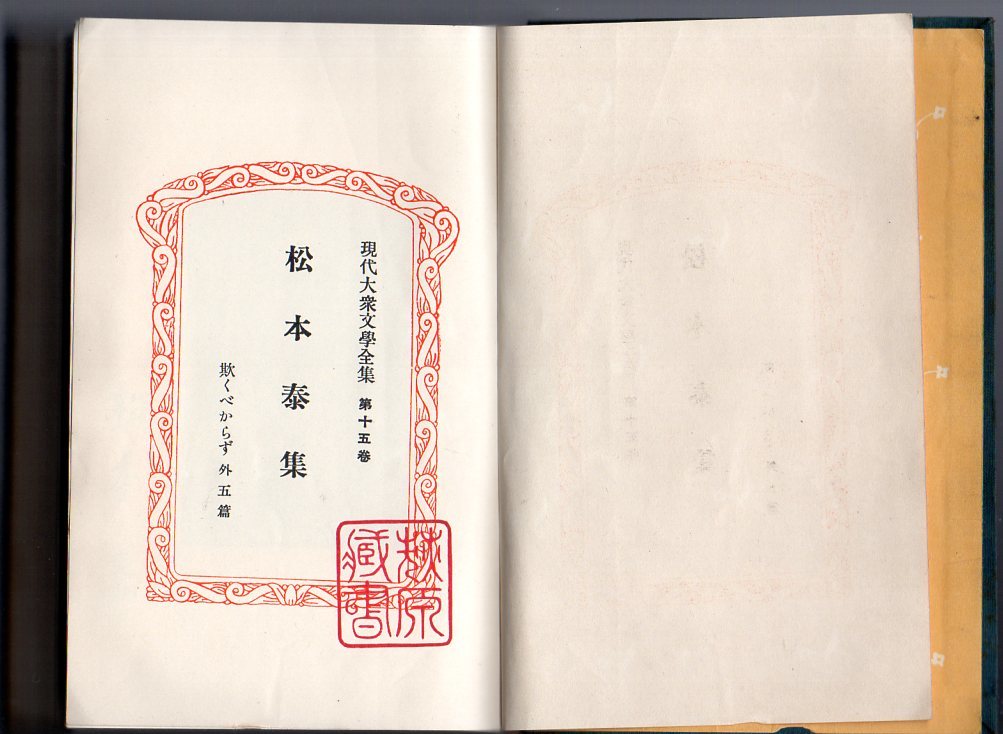 現代大衆文學全集 第十五卷
松本泰集
欺くべからず 外五篇
原
藏書